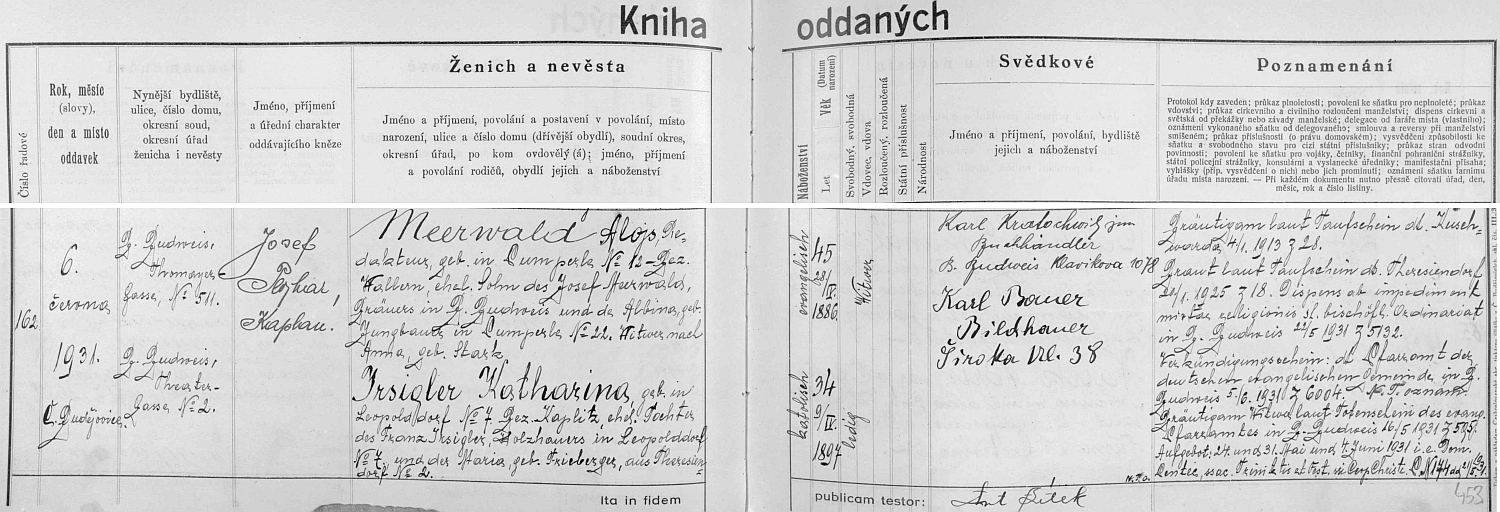 Kniha oddaných
Číslo řadové
Rok, měsíc
(slovy),
den a místo
oddavek
Nynější bydliště,
ulice, číslo domu,
okresní soud,
okresní úřad
ženicha i nevěsty
Jméno, příjmení
a úřední charakter
oddávajícího kněze
Ženich a nevěsta
Jméno a příjmení, povolání a postavení v povolání, místo
narození, ulice a číslo domu (dřívější obydlí), soudní okres,
okresní úřad, po kom ovdověl (á); jméno, příjmení
a povolání rodičů, obydlí jejich a náboženství
Náboženství
Let
Věk (Datum narození)
Svobodný, svobodná
Vdovec, vdova
Rozloučený, rozloučená
Státní příslušnost
Národnost
Svědkové
Jméno a příjmení, povolání, bydliště
jejich a náboženství
Poznamenání
Protokol kdy zaveden; průkaz plnoletosti; povolení ke sňatku pro neplnoleté; průkaz
vdovství; průkaz církevního a civilního rozloučení manželství; dispens církevní a
světská od překážky nebo závady manželské; delegace od faráře místa (vlastního);
oznámení vykonaného sňatku od delegovaného; smlouva a reversy při manželství
smíšeném; průkaz příslušnosti (o právu domovském); vysvědčení způsobilosti ke
sňatku a svobodného stavu pro cizí státní příslušníky; průkaz stran odvodní
povinnosti; povolení ke sňatku pro vojáky, četníky, finanční pohraniční strážníky,
státní policejní strážníky, konsulární a vyslanecké úředníky; manifestační přísaha;
vyhlášky (příp. vysvědčení o nich) nebo jich prominutí; oznámení sňatku farnímu
úřadu místa narození. — Při každém dokumentu nutno přesně citovati úřad, den,
měsíc, rok a číslo listiny.
162
6.
června
1931.
Č. Budějovice
B. Budweis,
Thomayer-
Gasse, No 511.
B. Budweis,
Theater-
Gasse, No 2.
Josef
Kaplan.
Meerwald Alojs, Re-
dakteur, geb. in Cumperle No 12 - Bez.
Wallern, ehel. Sohn des Josef Meerwald,
Bräuers in B. Budweis und der Albina, geb.
Jungbauer in Cumperle No 22. Witwer nach
Anna, geb. Stark
Irsigler Katharina, geb. in
Leopolddorf No 7, Bez. Kaplitz, ehel. Tochter
des Franz Irsigler, Holzhauers in Leopolddorf
No 7 und der Maria, geb. Frieberger, aus Theresien-
dorf No 2.
evangelisch
45
28/
1886
Witwer
katolisch
34
9/IV.
1897
ledig
Karl Kratochwil jun
Buchhändler
B. Budweis Klavikova 1078
Karl Bauer
Bildhauer
Široka Ul. 38
Bräutigam laut Taufschein dt. Kusch-
warda 4/1. 1913 Z 28.
Braut laut Taufschein dt. Theresiendorf
1. 1925 Z 18. Dispens ab impediment
mixtae religionis bischöfl. Ordinariat
in B. Budweis 22/5 1931 Z 5132.
Verkündigungsschein: dt. Pfarramt der
deutschen evangelischen Gemeinde in B.
Budweis 5/6. 1931 Z 6004.
Bräutigam Witwer laut Totenschein des evang.
Pfarramtes in B. Budweis 16/5 1931 Z 595.
Aufgebot: 24. und 31. Mai und 4. Juni 1931 i. e. Dom.
Pentec,
Ita in fidem publicam testor:
453